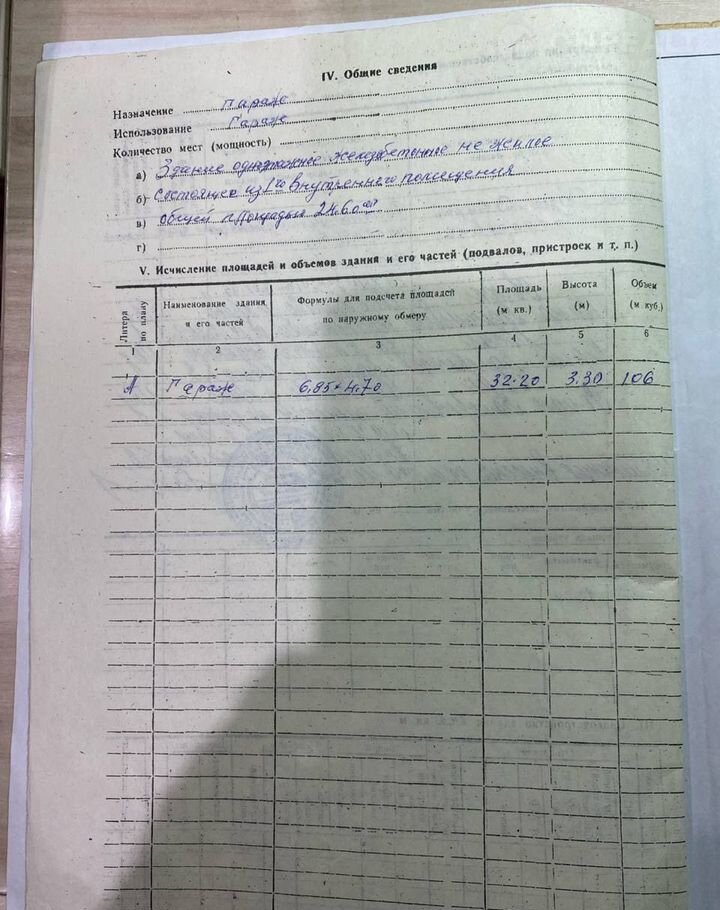 IV. Общие сведения
Назначение Гараж
Использование Гараж
Количество мест (мощность)
а) Здание одноэтажное железобетонное не жилое
б) состоящее из 1го внутреннего помещения
в) общей площадью 24.60 м²
г)
V. Исчисление площадей и объемов здания и его частей (подвалов, пристроек и т. п.)
Литера по плану
Наименование здания и его частей
Формулы для подсчета площадей по наружному обмеру
Площадь (м кв.)
Высота (м)
Объем (м куб.)
1 2 3 4 5 6
А Гараж 6,85×4.70 32.20 3.30 106